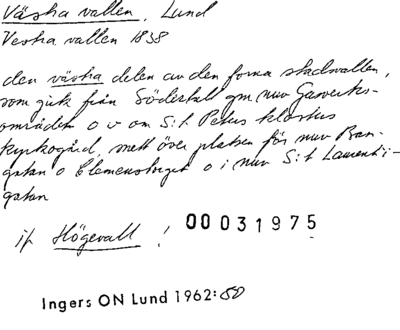 Västra vallen, Lund
Vestra vallen 1838
den västra delen av den forna stadsvallen,
som gick från Södertull gm nuv Gasverks-
området o v om S:t Peters klosters
kyrkogård, mitt över platsen för nuv Ban-
gatan o Clemenstorget o i nuv S:t Laurenti-
gatan
jf Högevall !
00031975
Ingers ON Lund 1962:50